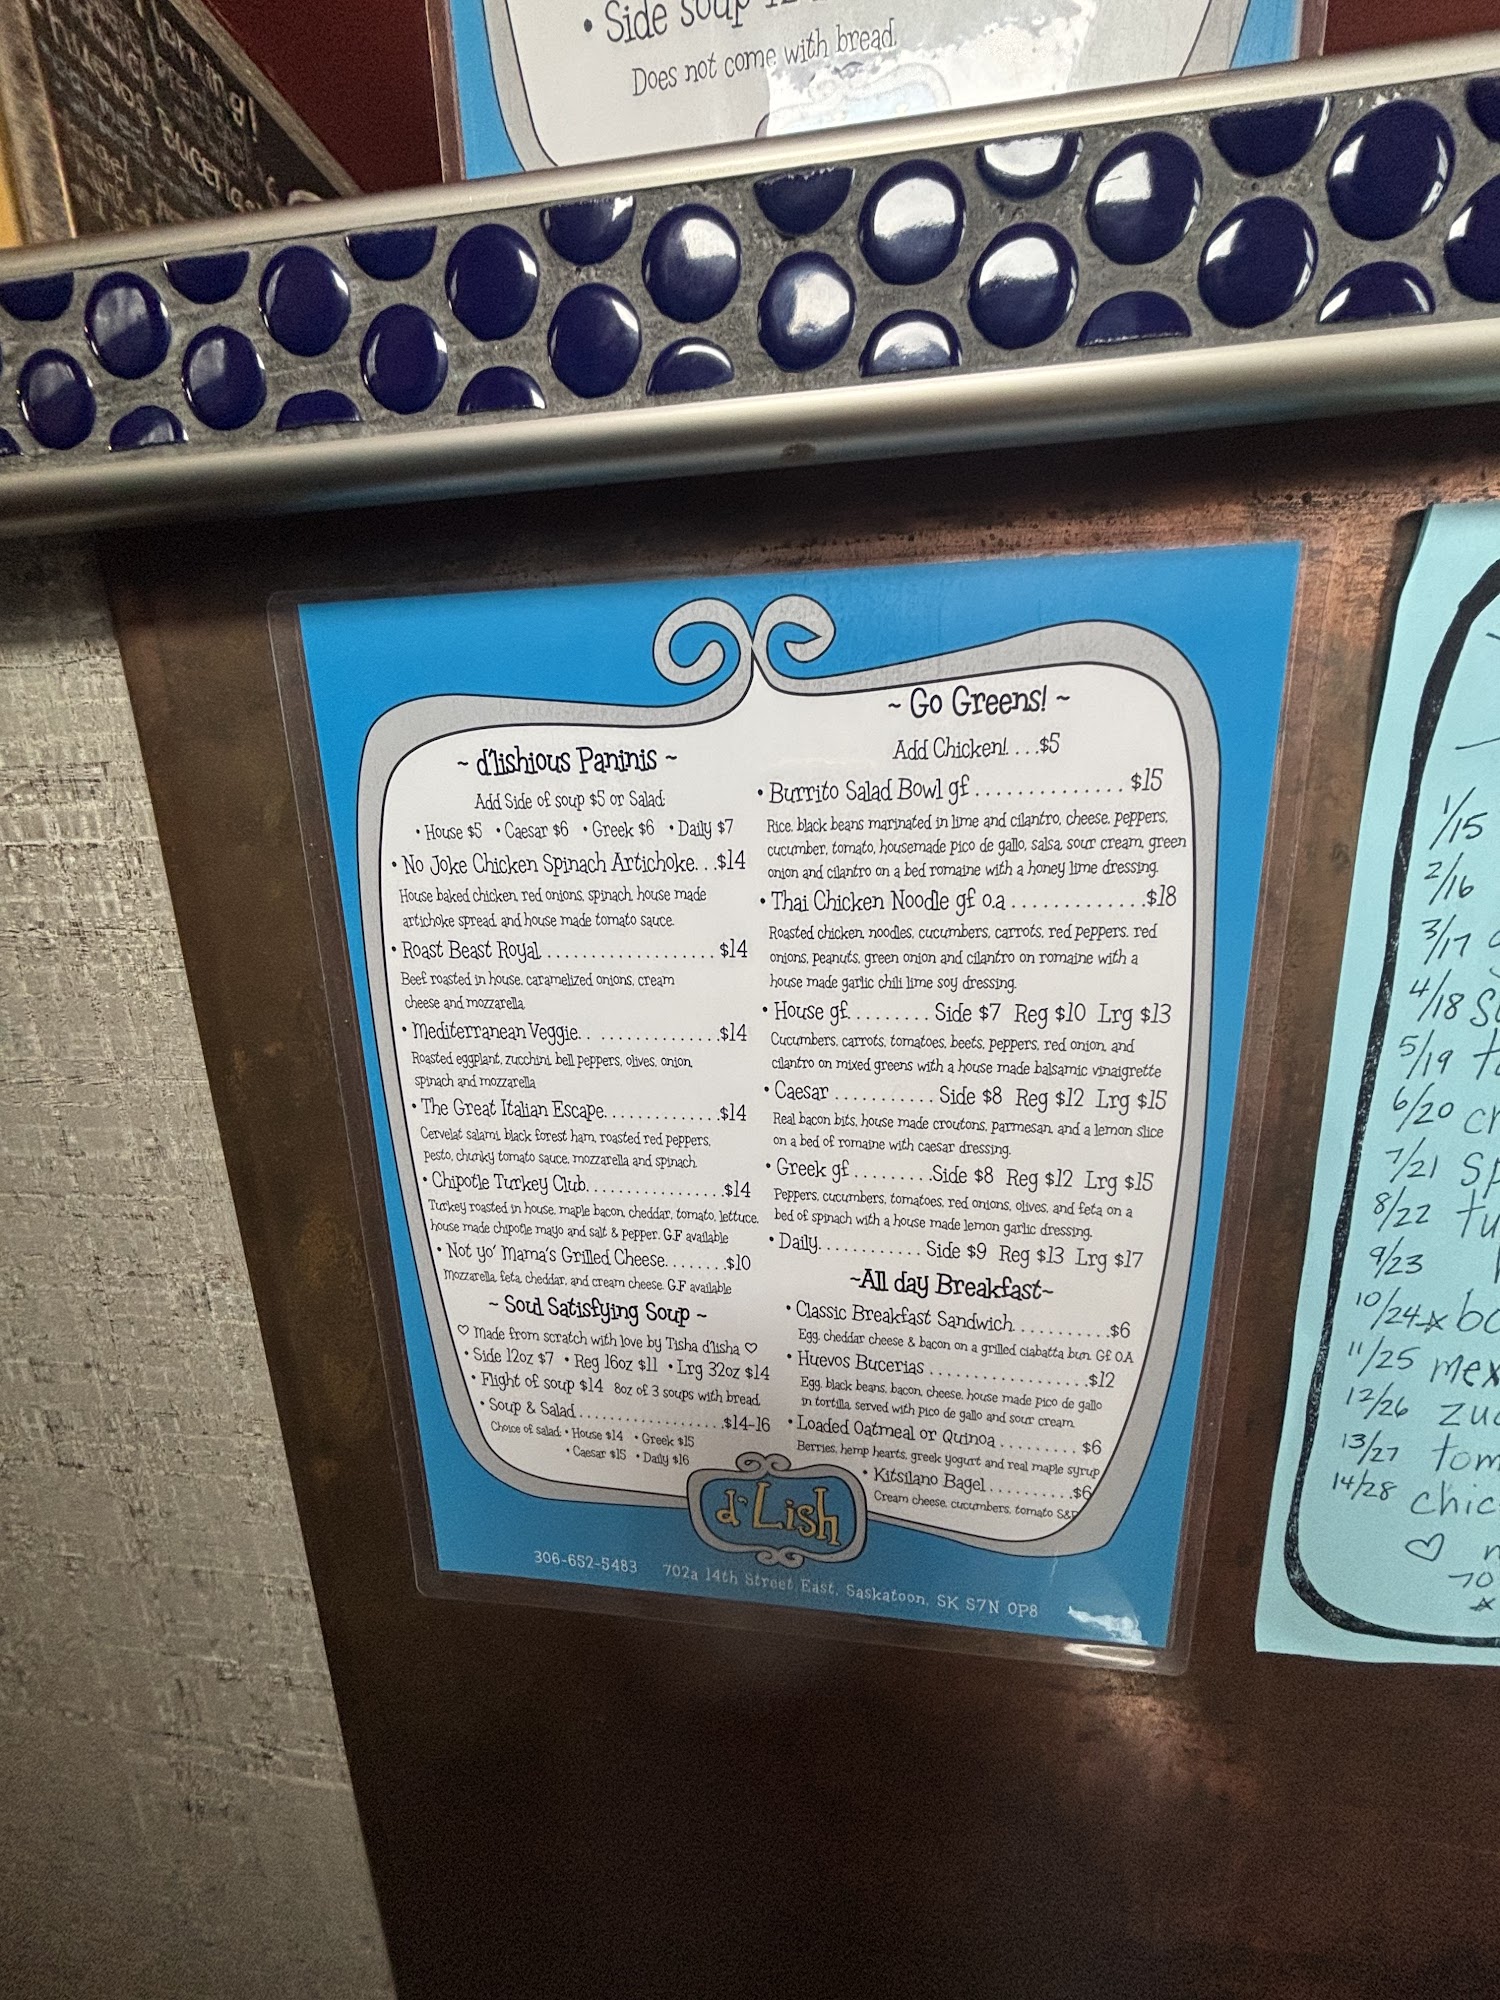 • Side soup 12
Does not come with bread.
~ d'lishious Paninis ~
Add Side of soup $5 or Salad:
• House $5 • Caesar $6 • Greek $6 • Daily $7
• No Joke Chicken Spinach Artichoke...$14
House baked chicken, red onions, spinach, house made
artichoke spread, and house made tomato sauce.
• Roast Beast Royal....................$14
Beef roasted in house, caramelized onions, cream
cheese and mozzarella
• Mediterranean Veggie.. ...............$14
Roasted eggplant, zucchini, bell peppers, olives, onion,
spinach and mozzarella
• The Great Italian Escape.............$14
Cervelat salami, black forest ham, roasted red peppers,
pesto, chunky tomato sauce, mozzarella and spinach.
• Chipotle Turkey Club.................$14
Turkey roasted in house, maple bacon, cheddar, tomato, lettuce,
house made chipotle mayo and salt & pepper. G.F available
• Not yo' Mama's Grilled Cheese........$10
Mozzarella, feta, cheddar, and cream cheese. G.F available
~ Soul Satisfying Soup ~
♡ Made from scratch with love by Tisha d'lisha ♡
• Side 12oz $7 • Reg 16oz $11 • Lrg 32oz $14
• Flight of soup $14 8oz of 3 soups with bread
• Soup & Salad.....................$14-16
Choice of salad: • House $14 • Greek $15
• Caesar $15 • Daily $16
~ Go Greens! ~
Add Chicken!....$5
• Burrito Salad Bowl gf..............$15
Rice, black beans marinated in lime and cilantro, cheese, peppers,
cucumber, tomato, housemade pico de gallo, salsa, sour cream, green
onion and cilantro on a bed romaine with a honey lime dressing.
• Thai Chicken Noodle gf o.a.............$18
Roasted chicken, noodles, cucumbers, carrots, red peppers, red
onions, peanuts, green onion and cilantro on romaine with a
house made garlic chili lime soy dressing.
• House gf......... Side $7 Reg $10 Lrg $13
Cucumbers, carrots, tomatoes, beets, peppers, red onion, and
cilantro on mixed greens with a house made balsamic vinaigrette
• Caesar........... Side $8 Reg $12 Lrg $15
Real bacon bits, house made croutons, parmesan, and a lemon slice
on a bed of romaine with caesar dressing.
• Greek gf.........Side $8 Reg $12 Lrg $15
Peppers, cucumbers, tomatoes, red onions, olives, and feta on a
bed of spinach with a house made lemon garlic dressing.
• Daily............ Side $9 Reg $13 Lrg $17
~All day Breakfast~
• Classic Breakfast Sandwich..........$6
Egg, cheddar cheese & bacon on a grilled ciabatta bun. Gf O.A
• Huevos Bucerias..................$12
Egg, black beans, bacon, cheese, house made pico de gallo
in tortilla, served with pico de gallo and sour cream
• Loaded Oatmeal or Quinoa......... $6
Berries, hemp hearts, greek yogurt and real maple syrup
• Kitsilano Bagel..........$6
Cream cheese, cucumbers, tomato S&P
d'Lish
306-652-5483 702a 14th Street East, Saskatoon, SK S7N 0P8
1/15
2/16
3/17
4/18
5/19
6/20
7/21
8/22
9/23
10/24
11/25
12/26
13/27
14/28